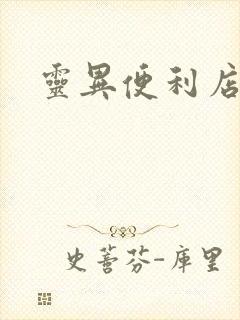 靈異便利店
史蒂芬-庫里